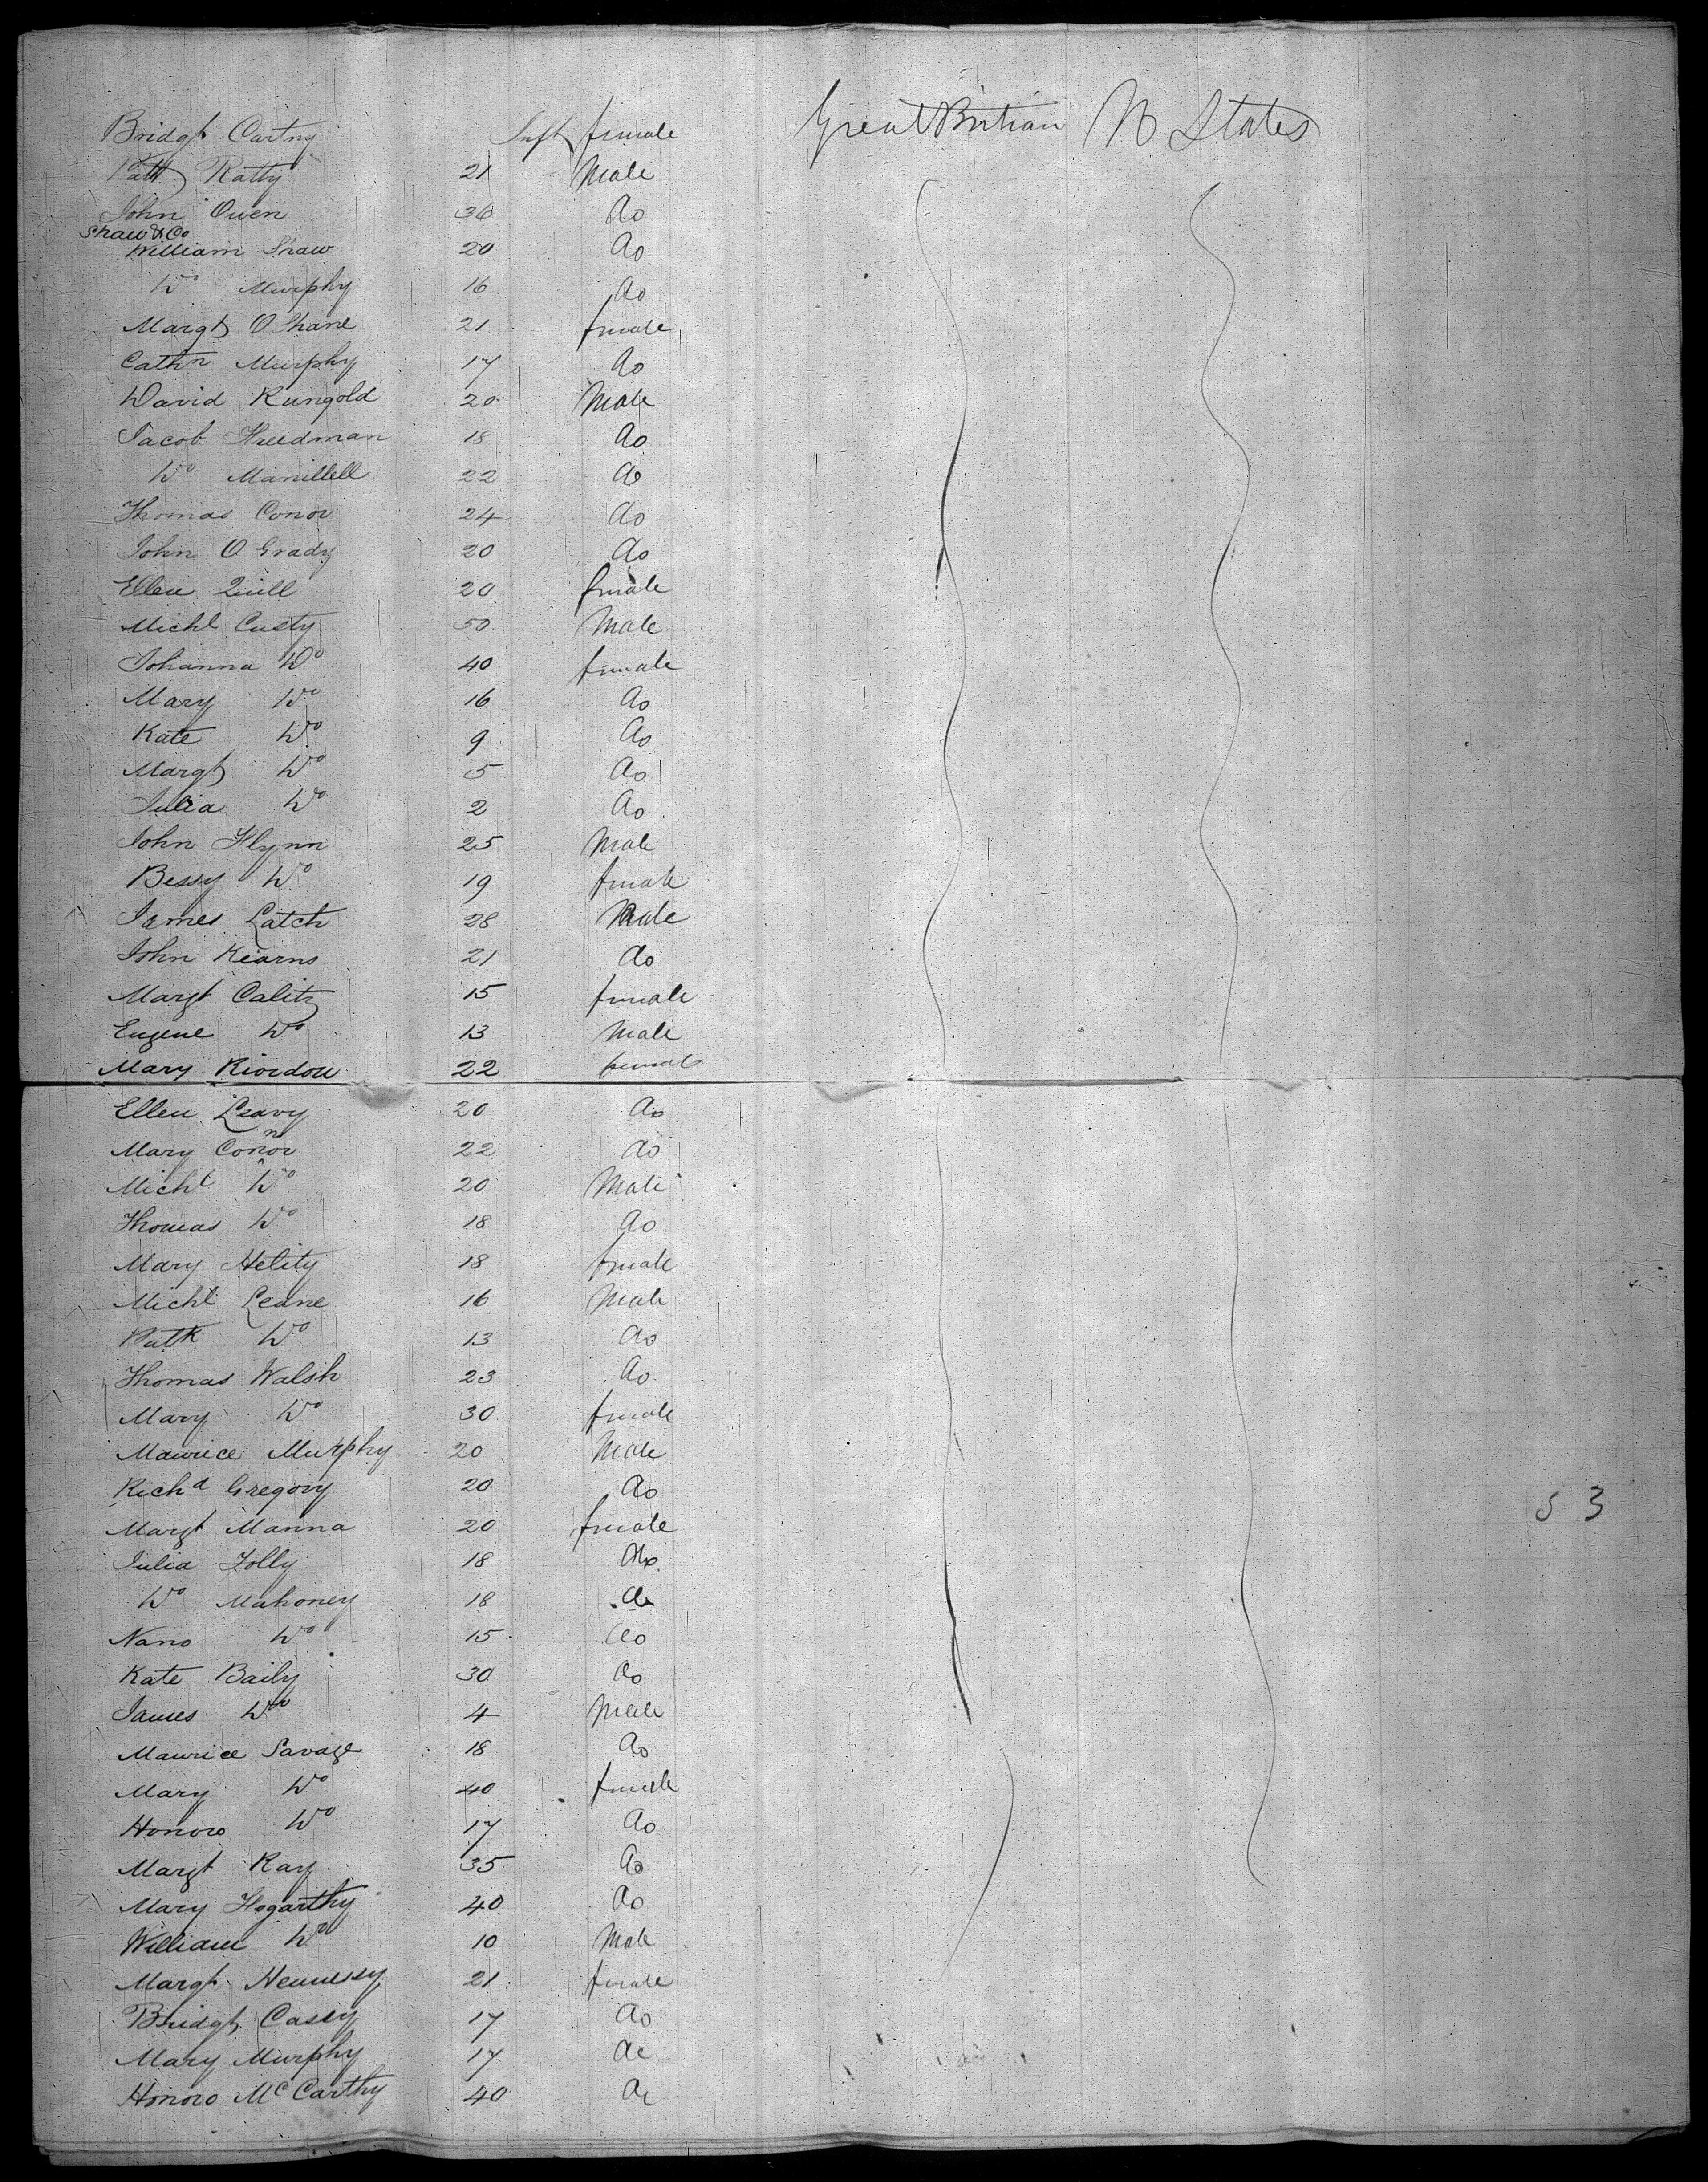 Bridgt Cartny Inft female Great Britian U States
Patk Ratty 21 Male
John Owen 36 do
Shaw & Co
William Shaw 20 do
Do Murphy 16 do
Margt O Shane 21 female
Cathn Murphy 17 do
David Rungold 20 Male
Jacob Freedman 18 do
Do Manillell 22 do
Thomas Conor 24 do
John O Grady 20 do
Ellen Quill 20 female
Michl Custy 50 Male
Johanna Do 40 female
Mary Do 16 do
Kate Do 9 do
Margt Do 5 do
Julia Do 2 do
John Flynn 25 Male
Bessy Do 19 female
James Latch 28 Male
John Kearns 21 do
Margt Calitz 15 female
Eugene Do 13 Male
Mary Riordon 22 female
Ellen Leavy 20 do
Mary Connor 22 do
Michl Do 20 Male
Thomas Do 18 do
Mary Helity 18 female
Michl Leane 16 Male
Patk Do 13 do
Thomas Walsh 23 do
Mary Do 30 female
Maurice Murphy 20 Male
Richd Gregory 20 do
Margt Manna 20 female
Julia Folly 18 do
Do Mahoney 18 do
Nano Do 15 do
Kate Baily 30 do
James Do 4 Male
Maurice Savage 18 do
Mary Do 40 female
Honoro Do 17 do
Margt Ray 35 do
Mary Hogarthy 40 do
William Do 10 Male
Margt Hennessy 21 female
Bridgt Casey 17 do
Mary Murphy 17 do
Honoro McCarthy 40 do
53